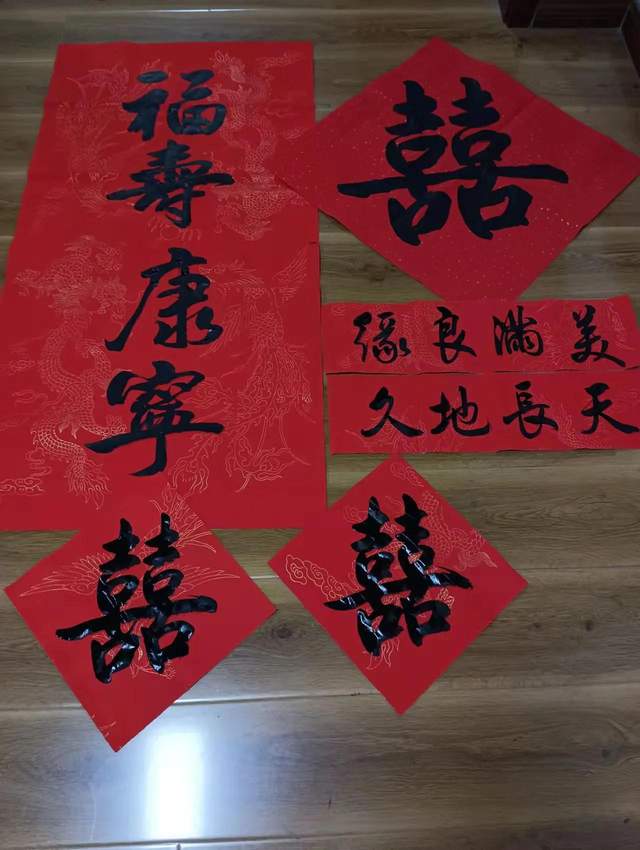 福壽康寧
囍
美滿良緣
天長地久
囍
囍